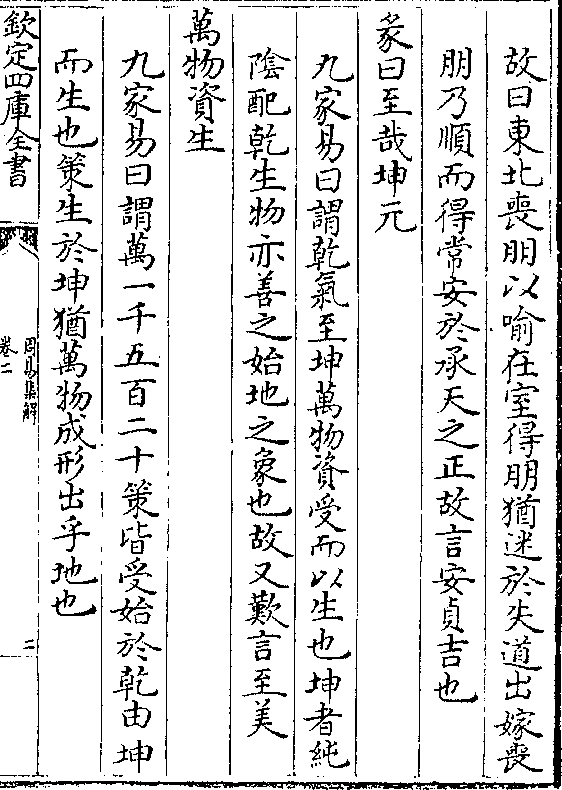 故曰東北喪朋以喻在室得朋猶迷於失道出嫁喪
朋乃順而得常安於承天之正故言安貞吉也
彖曰至哉坤元
九家易曰謂乾氣至坤萬物資受而以生也坤者純
陰配乾生物亦善之始地之象也故又歎言至美
萬物資生
九家易曰謂萬一千五百二十策皆受始於乾由坤
而生也策生於坤猶萬物成形出乎地也
欽定四庫全書
周易集解
卷二
二